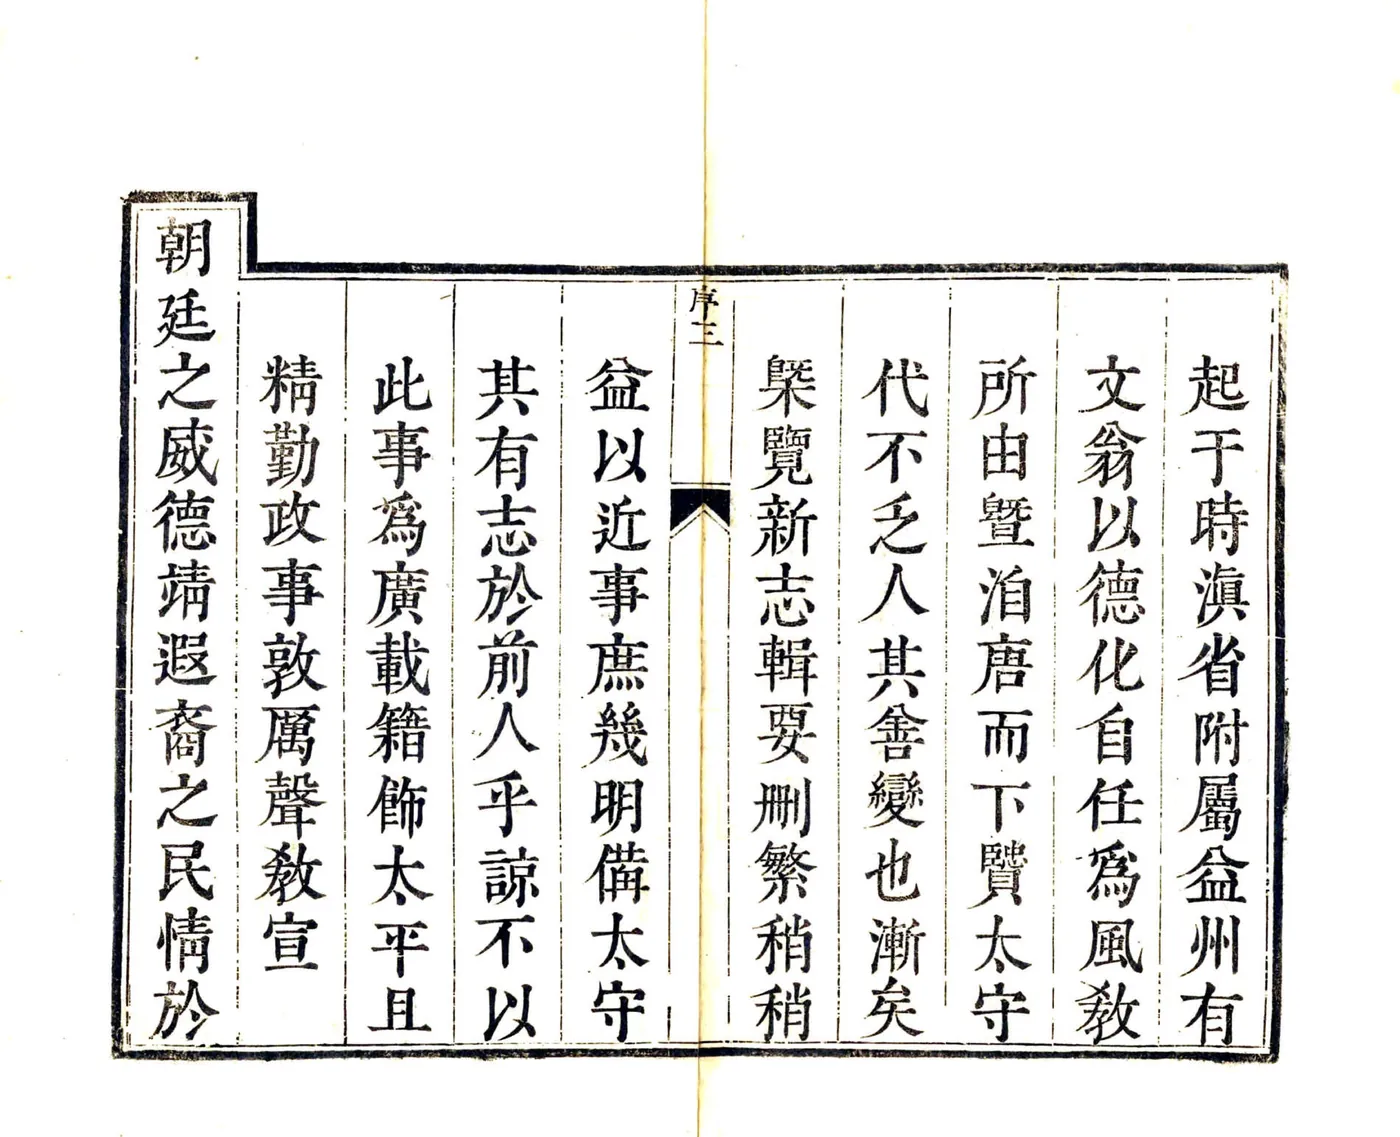 起于時滇省附屬益州有
文翁以德化自任爲風教
所由暨洎唐而下賢太守
代不乏人其善變也漸矣
槩覽新志輯要刪繁稍稍
序三
益以近事庶幾明備太守
其有志於前人乎諒不以
此事爲廣載籍飾太平且
精勤政事敦厲聲教宣
朝廷之威德靖遐裔之民情於